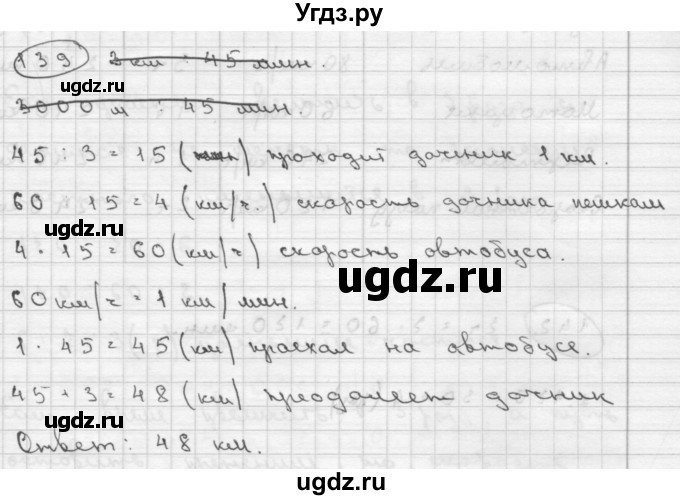 Угдз.ру
139 3 км : 45 мин.
3000 м : 45 мин.
45 : 3 = 15 (мин) проходит дачник 1 км.
60 : 15 = 4 (км/ч.) скорость дачника пешкам
4 · 15 = 60 (км/ч) скорость автобуса.
60 км/ч = 1 км/мин.
1 · 45 = 45 (км) праехал на автобусе.
45 + 3 = 48 (км) преодалеет дачник
Ответ: 48 км.
ugdz.ru
ugdz.ru
ugdz.ru
ugdz.ru
ugdz.ru
ugdz.ru
ugdz.ru
ugdz.ru
ugdz.ru
ugdz.ru